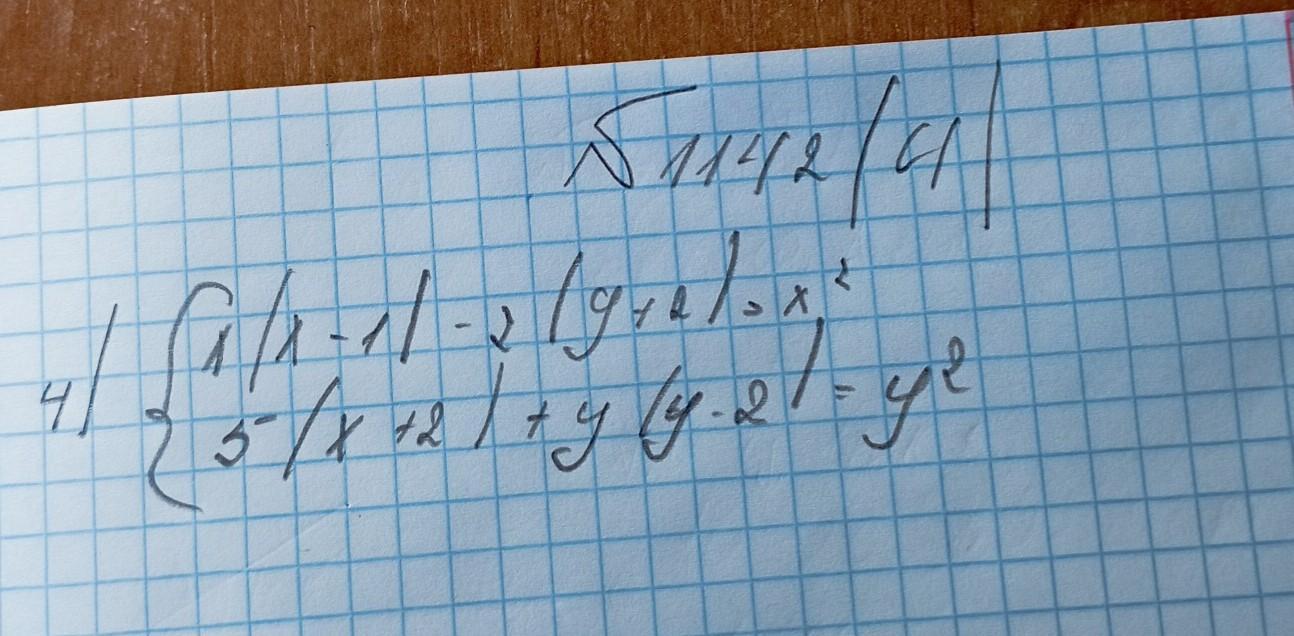 № 1142 (4)
4) { x(x - 1) - 2(y + 2) = x²
5(x + 2) + y(y - 2) = y²